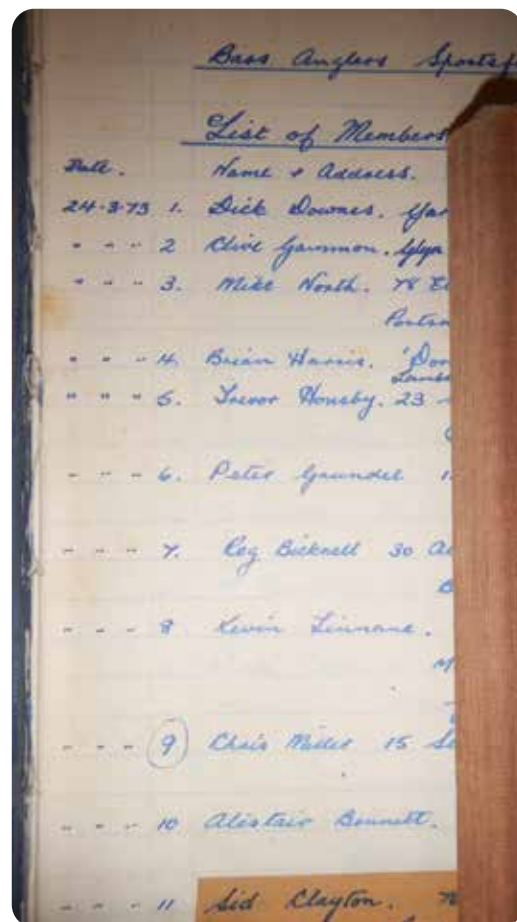 Bass Anglers Sportsf
List of Members
Date. Name + Address.
24-3-73 1. Dick Downes. Yar
" " " 2 Clive Gammon. Glyn
" " " 3. Mike North. 78
Portsm
" " " 4. Brian Harris.
" " " 5. Trevor Housby. 23
" " " 6. Peter Grundel 1
" " " 7. Reg Bicknell 30
B
" " " 8 Kevin Linnane.
M
" " " 9 Chris Miller 15
" " " 10 Alistair Bennett.
" " " 11 Sid Clayton.